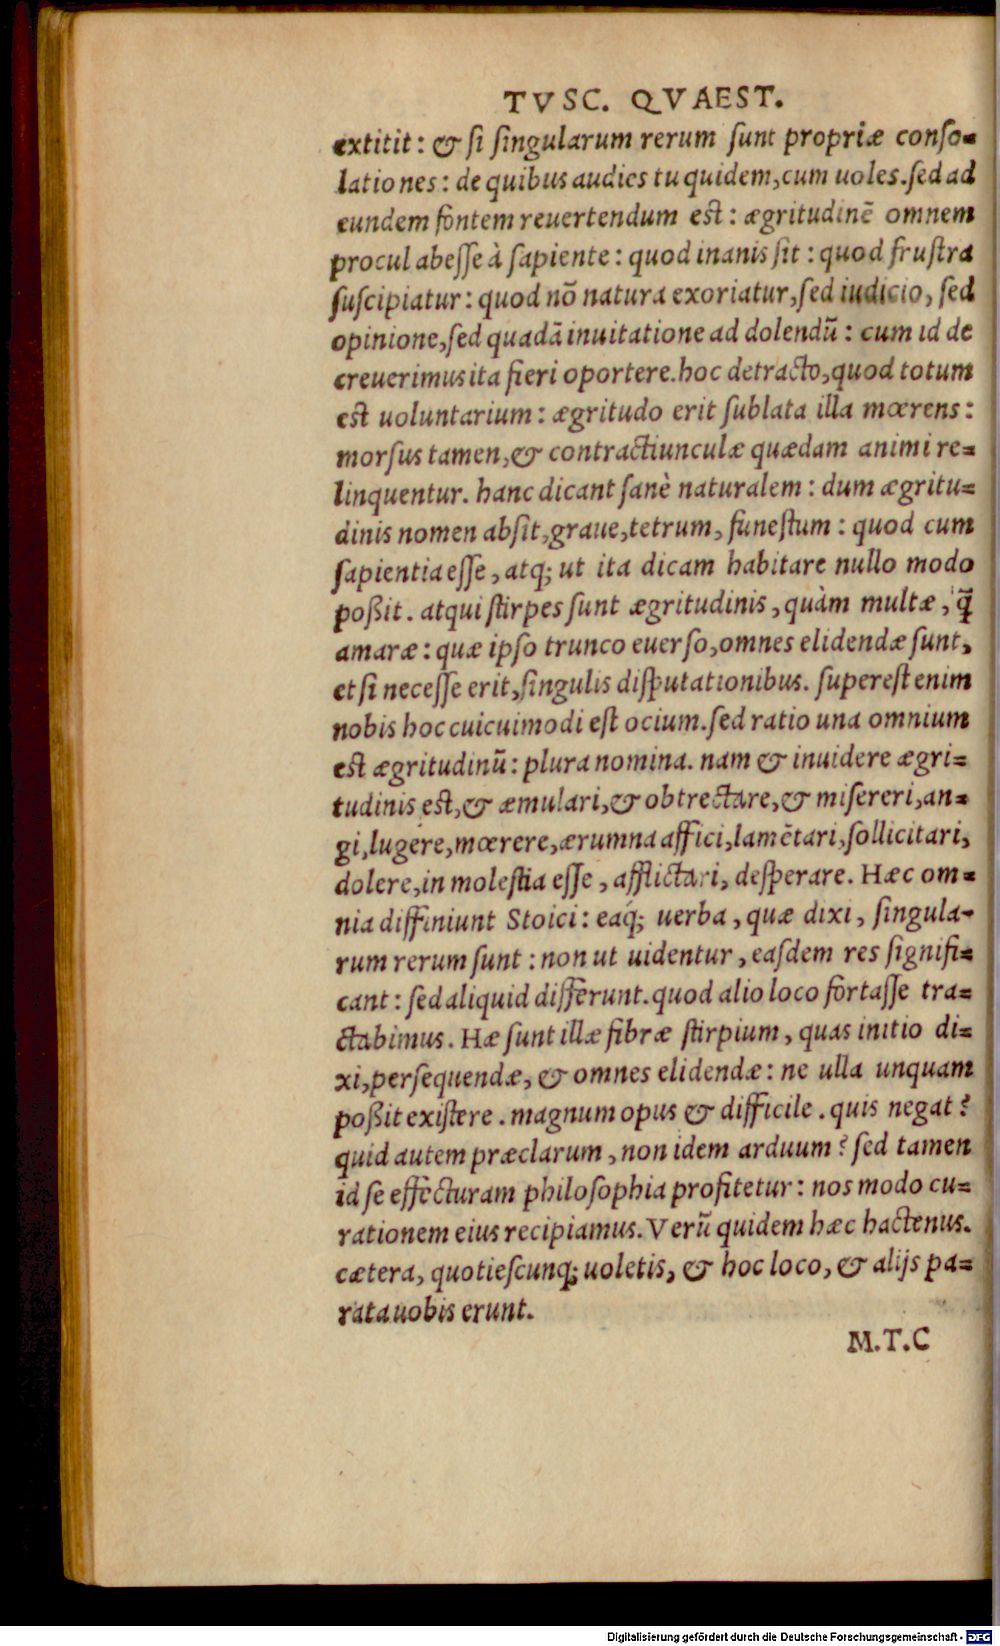 TVSC. QVAEST.
extitit: & si singularum rerum sunt propriæ conso=
lationes: de quibus audies tu quidem, cum uoles. sed ad
eundem fontem reuertendum est: ægritudinē omnem
procul abesse à sapiente: quod inanis sit: quod frustra
suscipiatur: quod nō natura exoriatur, sed iudicio, sed
opinione, sed quadā inuitatione ad dolendū: cum id de
creuerimus ita fieri oportere. hoc detracto, quod totum
est uoluntarium: ægritudo erit sublata illa mœrens:
morsus tamen, & contractiunculæ quædam animi re=
linquentur. hanc dicant sanè naturalem: dum ægritu=
dinis nomen absit, graue, tetrum, funestum: quod cum
sapientia esse, atq; ut ita dicam habitare nullo modo
poßit. atqui stirpes sunt ægritudinis, quàm multæ, q̄
amaræ: quæ ipso trunco euerso, omnes elidendæ sunt,
et si necesse erit, singulis disputationibus. superest enim
nobis hoc cuicuimodi est ocium. sed ratio una omnium
est ægritudinū: plura nomina. nam & inuidere ægri=
tudinis est, & æmulari, & obtrectare, & misereri, an=
gi, lugere, mœrere, ærumna affici, lamētari, sollicitari,
dolere, in molestia esse, afflictari, desperare. Hæc om=
nia diffiniunt Stoici: eaq́; uerba, quæ dixi, singula=
rum rerum sunt: non ut uidentur, easdem res signifi=
cant: sed aliquid differunt. quod alio loco fortasse tra=
ctabimus. Hæ sunt illæ fibræ stirpium, quas initio di=
xi, persequendæ, & omnes elidendæ: ne ulla unquam
poßit existere. magnum opus & difficile. quis negat?
quid autem præclarum, non idem arduum? sed tamen
id se effecturam philosophia profitetur: nos modo cu=
rationem eius recipiamus. Verū quidem hæc hactenus.
cætera, quotiescunq; uoletis, & hoc loco, & alijs pa=
rata uobis erunt.
M.T.C
Digitalisierung gefördert durch die Deutsche Forschungsgemeinschaft - DFG